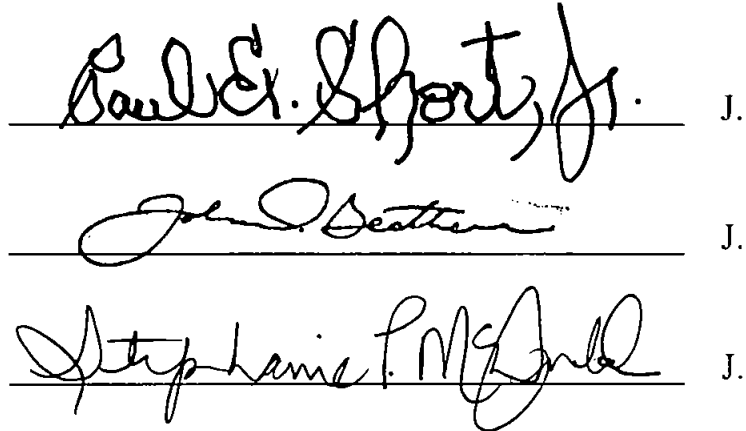 Paul E. Short, Jr. J.
John J.
Stephanie P. McDonald J.